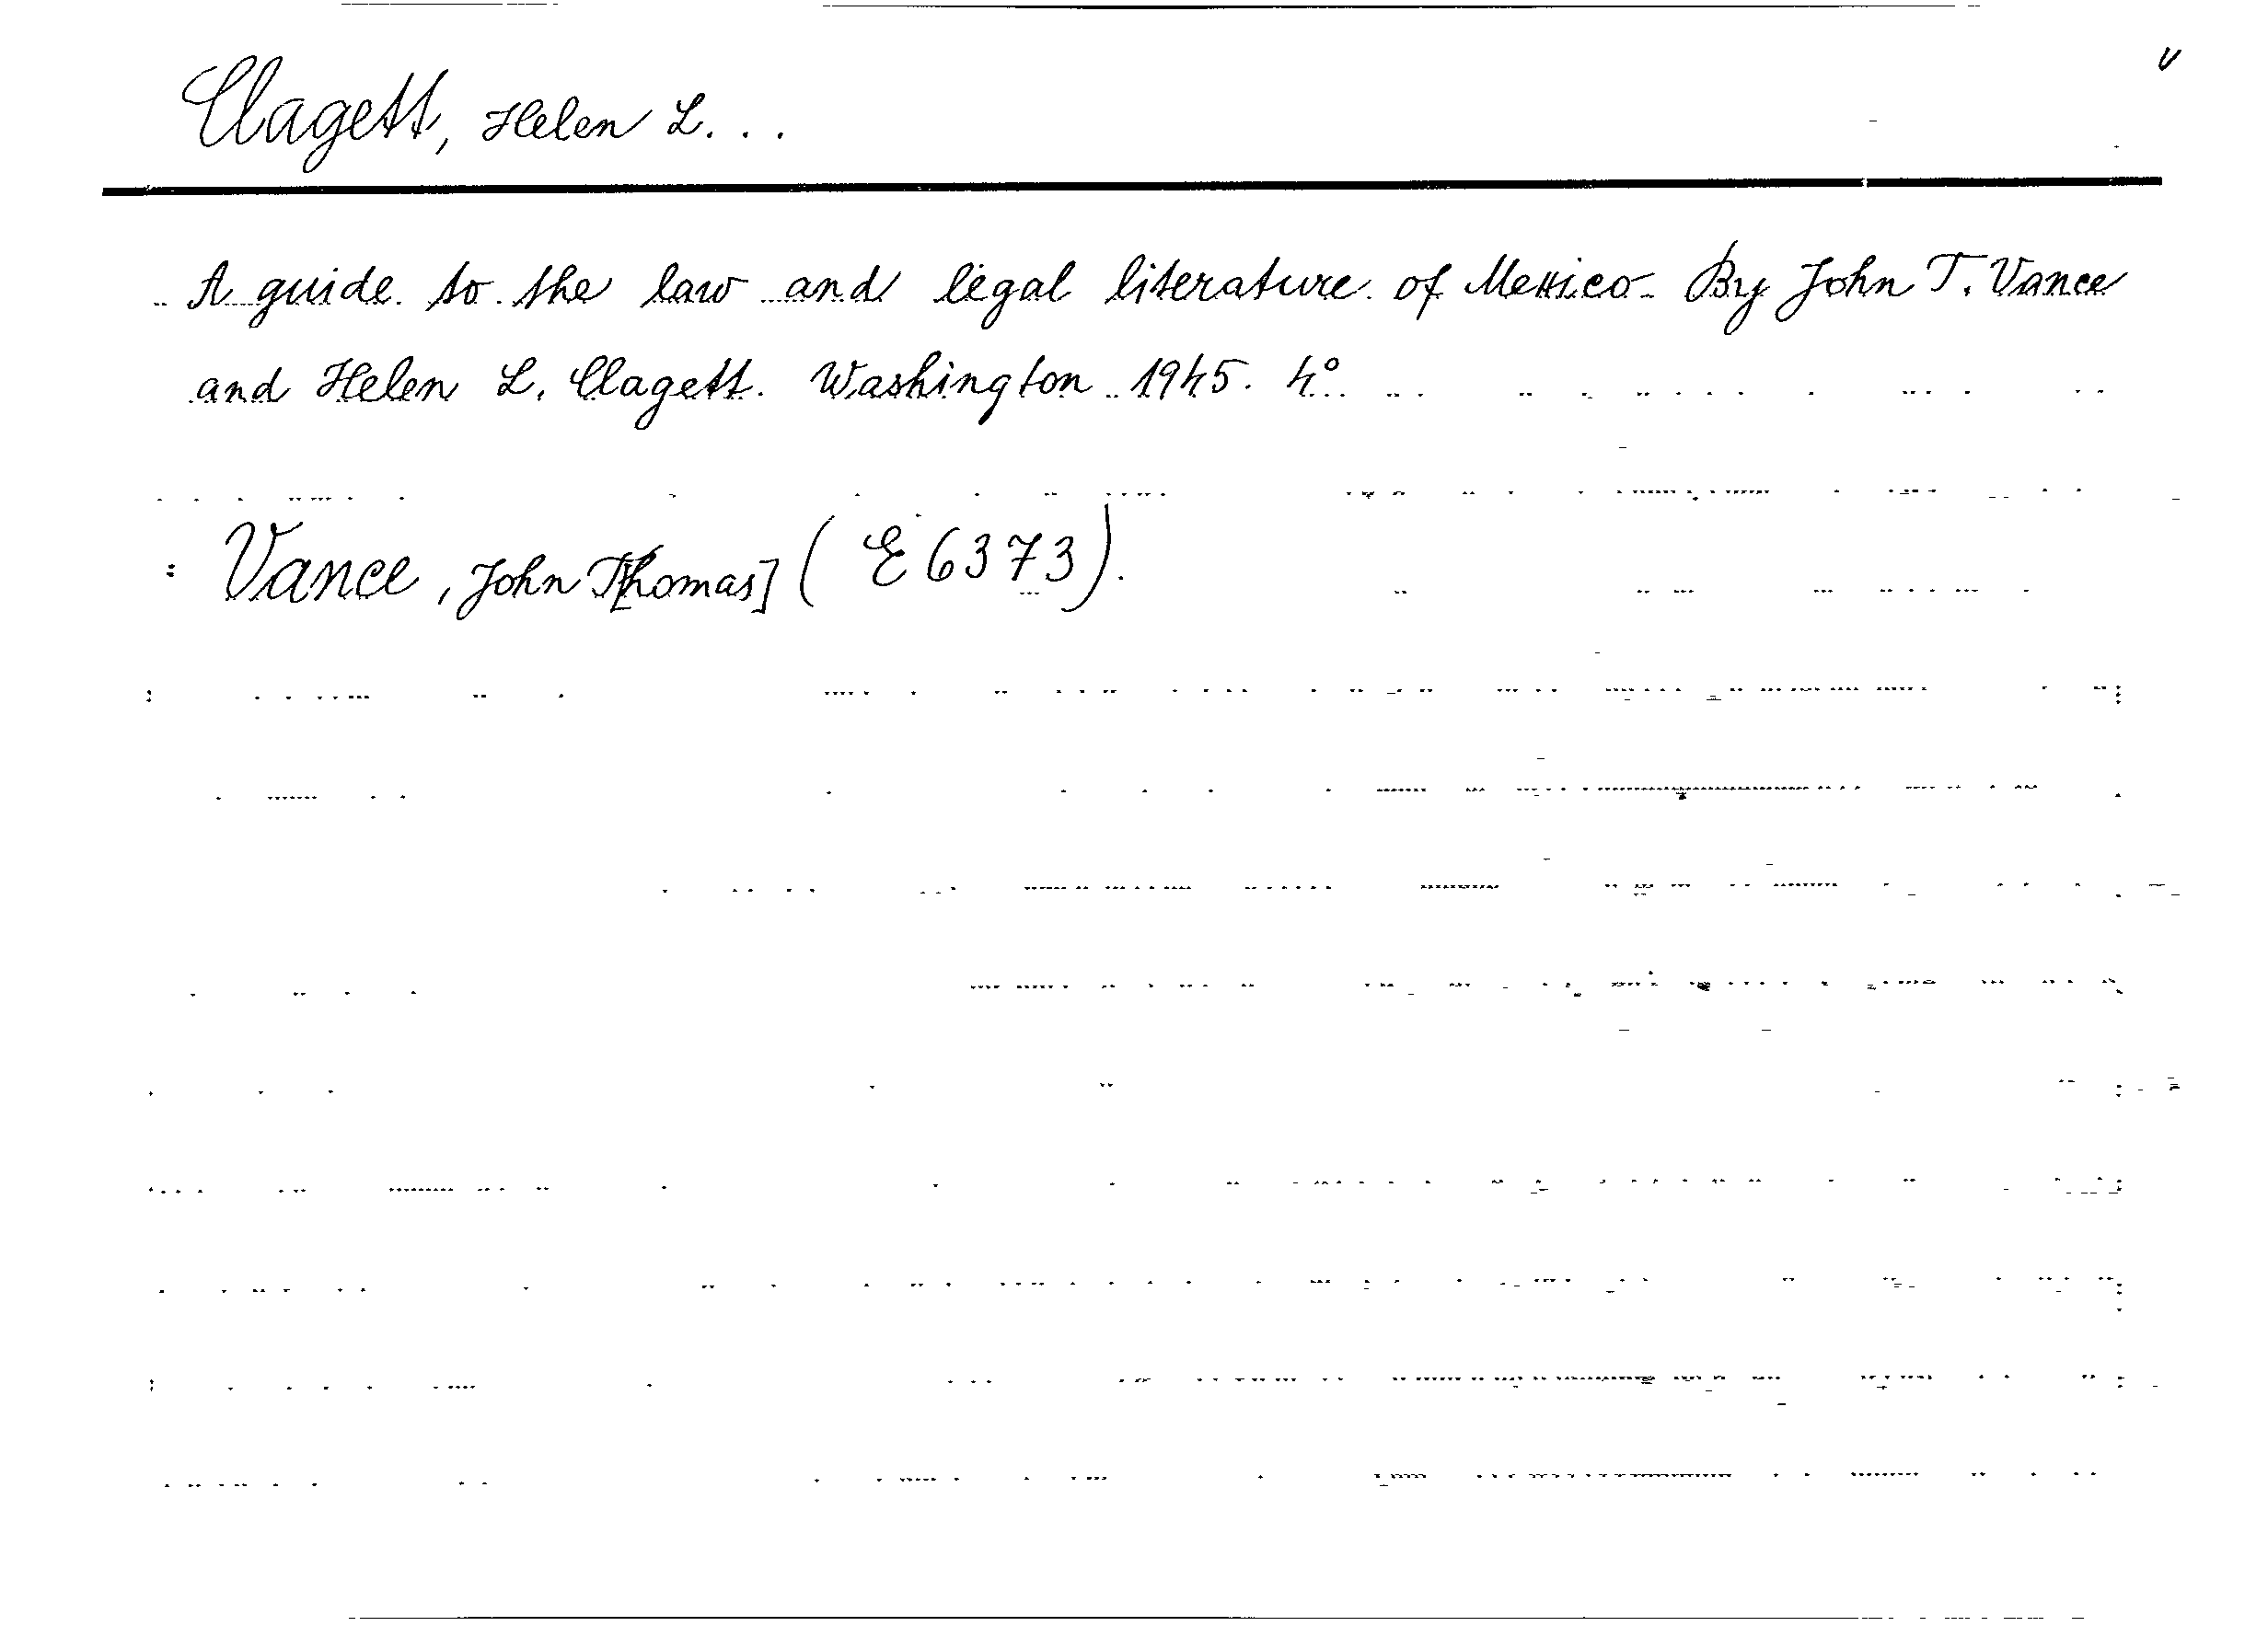 Clagett, Helen L...
A guide to the law and legal literature of Mexico. By John T. Vance
and Helen L. Clagett. Washington 1945. 4°.
: Vance, John T[homas] (E 6373).